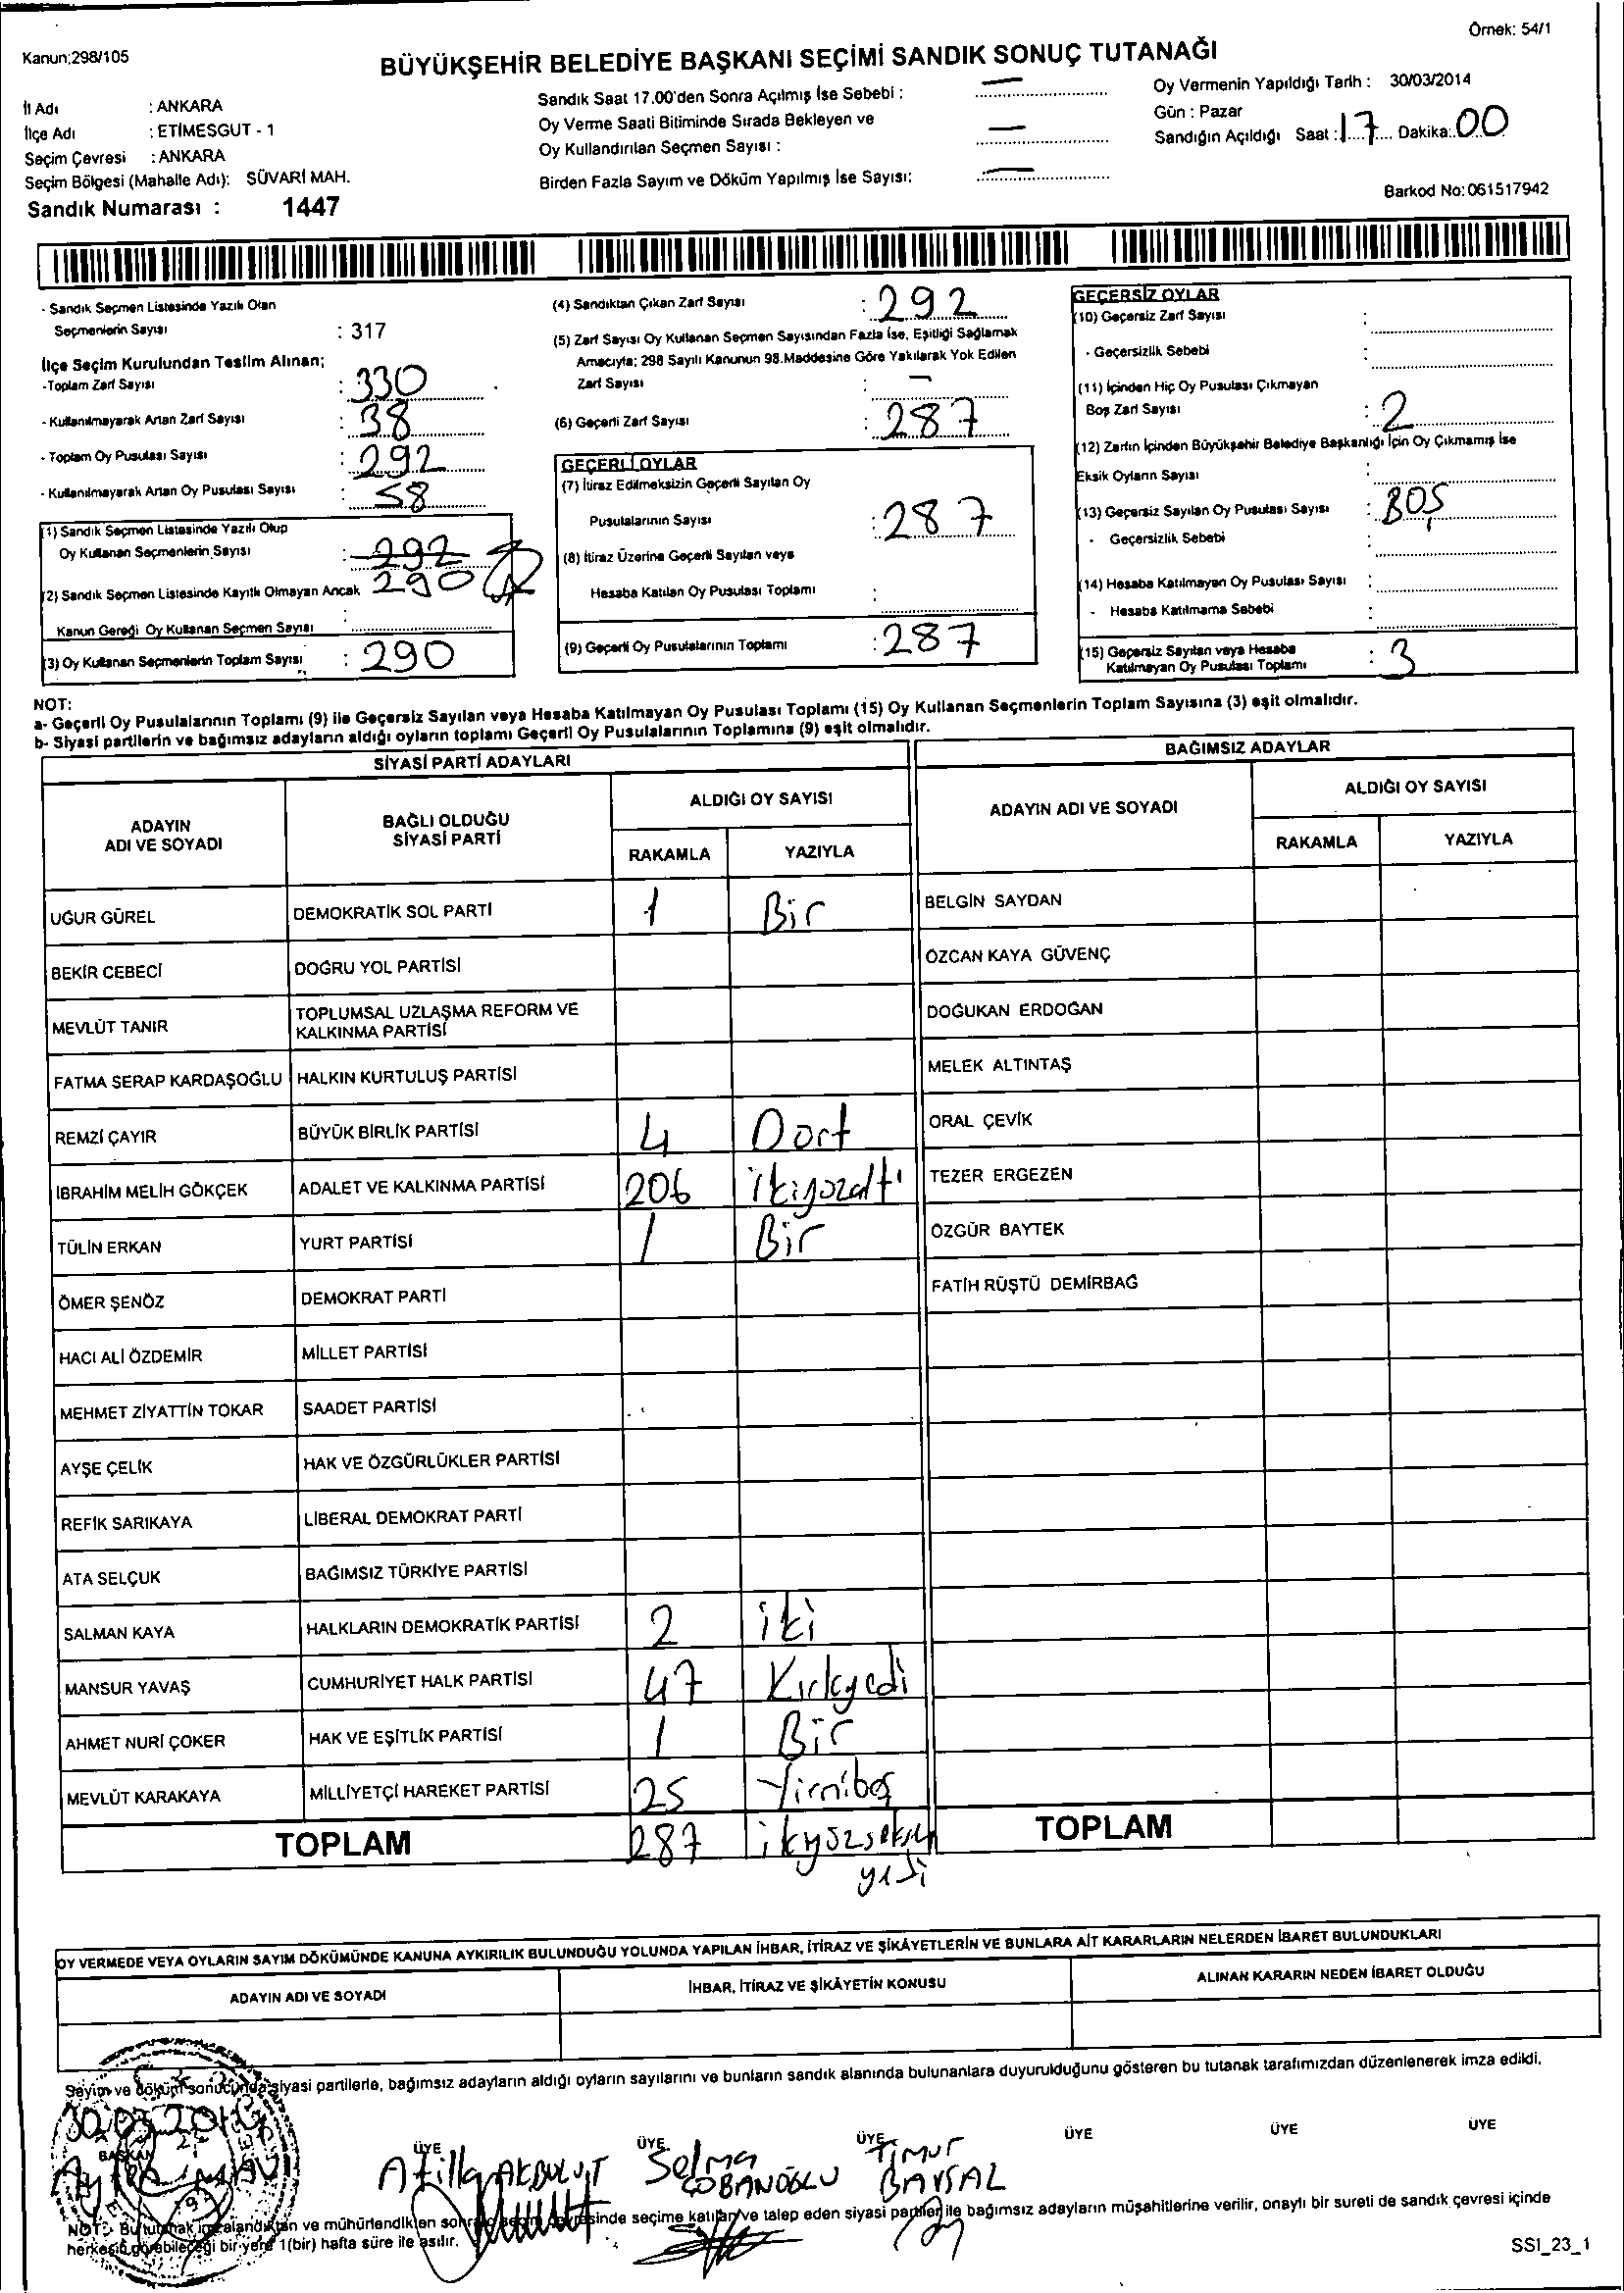 Örnek: 54/1
Kanun;298/105
BÜYÜKŞEHİR BELEDİYE BAŞKANI SEÇİMİ SANDIK SONUÇ TUTANAĞI
İl Adı : ANKARA
İlçe Adı : ETİMESGUT - 1
Seçim Çevresi : ANKARA
Seçim Bölgesi (Mahalle Adı): SÜVARİ MAH.
Sandık Numarası : 1447
Sandık Saat 17.00'den Sonra Açılmış İse Sebebi : —
Oy Verme Saati Bitiminde Sırada Bekleyen ve
Oy Kullandırılan Seçmen Sayısı : —
Birden Fazla Sayım ve Döküm Yapılmış İse Sayısı: —
Oy Vermenin Yapıldığı Tarih : 30/03/2014
Gün : Pazar
Sandığın Açıldığı Saat : 17 Dakika: 00
Barkod No: 061517942
- Sandık Seçmen Listesinde Yazılı Olan
Seçmenlerin Sayısı : 317
İlçe Seçim Kurulundan Teslim Alınan;
-Toplam Zarf Sayısı : 330
- Kullanılmayarak Artan Zarf Sayısı : 38
- Toplam Oy Pusulası Sayısı : 292
- Kullanılmayarak Artan Oy Pusulası Sayısı : 58
(1) Sandık Seçmen Listesinde Yazılı Olup
Oy Kullanan Seçmenlerin Sayısı : 292
290
(2) Sandık Seçmen Listesinde Kayıtlı Olmayan Ancak
Kanun Gereği Oy Kullanan Seçmen Sayısı :
(3) Oy Kullanan Seçmenlerin Toplam Sayısı : 290
(4) Sandıktan Çıkan Zarf Sayısı : 292
(5) Zarf Sayısı Oy Kullanan Seçmen Sayısından Fazla İse, Eşitliği Sağlamak
Amacıyla; 298 Sayılı Kanunun 98.Maddesine Göre Yakılarak Yok Edilen
Zarf Sayısı : –
(6) Geçerli Zarf Sayısı : 287
GEÇERLİ OYLAR
(7) İtiraz Edilmeksizin Geçerli Sayılan Oy
Pusulalarının Sayısı : 287
(8) İtiraz Üzerine Geçerli Sayılan veya
Hesaba Katılan Oy Pusulası Toplamı :
(9) Geçerli Oy Pusulalarının Toplamı : 287
GEÇERSİZ OYLAR
(10) Geçersiz Zarf Sayısı :
- Geçersizlik Sebebi :
(11) İçinden Hiç Oy Pusulası Çıkmayan
Boş Zarf Sayısı : 2
(12) Zarfın İçinden Büyükşehir Belediye Başkanlığı İçin Oy Çıkmamış İse
Eksik Oyların Sayısı :
(13) Geçersiz Sayılan Oy Pusulası Sayısı : BOŞ
- Geçersizlik Sebebi :
(14) Hesaba Katılmayan Oy Pusulası Sayısı :
- Hesaba Katılmama Sebebi :
(15) Geçersiz Sayılan veya Hesaba
Katılmayan Oy Pusulası Toplamı : 3
NOT:
a- Geçerli Oy Pusulalarının Toplamı (9) ile Geçersiz Sayılan veya Hesaba Katılmayan Oy Pusulası Toplamı (15) Oy Kullanan Seçmenlerin Toplam Sayısına (3) eşit olmalıdır.
b- Siyasi partilerin ve bağımsız adayların aldığı oyların toplamı Geçerli Oy Pusulalarının Toplamına (9) eşit olmalıdır.
SİYASİ PARTİ ADAYLARI
ADAYIN ADI VE SOYADI BAĞLI OLDUĞU SİYASİ PARTİ ALDIĞI OY SAYISI
RAKAMLA YAZIYLA
UĞUR GÜREL DEMOKRATİK SOL PARTİ 1 Bir
BEKİR CEBECİ DOĞRU YOL PARTİSİ
MEVLÜT TANIR TOPLUMSAL UZLAŞMA REFORM VE
KALKINMA PARTİSİ
FATMA SERAP KARDAŞOĞLU HALKIN KURTULUŞ PARTİSİ
REMZİ ÇAYIR BÜYÜK BİRLİK PARTİSİ 4 Dort
İBRAHİM MELİH GÖKÇEK ADALET VE KALKINMA PARTİSİ 206 ikiyozaltı
TÜLİN ERKAN YURT PARTİSİ 1 Bir
ÖMER ŞENÖZ DEMOKRAT PARTİ
HACI ALİ ÖZDEMİR MİLLET PARTİSİ
MEHMET ZİYATTİN TOKAR SAADET PARTİSİ
AYŞE ÇELİK HAK VE ÖZGÜRLÜKLER PARTİSİ
REFİK SARIKAYA LİBERAL DEMOKRAT PARTİ
ATA SELÇUK BAĞIMSIZ TÜRKİYE PARTİSİ
SALMAN KAYA HALKLARIN DEMOKRATİK PARTİSİ 2 iki
MANSUR YAVAŞ CUMHURİYET HALK PARTİSİ 47 Kırkyedi
AHMET NURİ ÇOKER HAK VE EŞİTLİK PARTİSİ 1 Bir
MEVLÜT KARAKAYA MİLLİYETÇİ HAREKET PARTİSİ 25 Yirmibeş
TOPLAM 287 ikyüzseksen
yedi
BAĞIMSIZ ADAYLAR
ADAYIN ADI VE SOYADI ALDIĞI OY SAYISI
RAKAMLA YAZIYLA
BELGİN SAYDAN
ÖZCAN KAYA GÜVENÇ
DOĞUKAN ERDOĞAN
MELEK ALTINTAŞ
ORAL ÇEVİK
TEZER ERGEZEN
ÖZGÜR BAYTEK
FATİH RÜŞTÜ DEMİRBAĞ
TOPLAM
OY VERMEDE VEYA OYLARIN SAYIM DÖKÜMÜNDE KANUNA AYKIRILIK BULUNDUĞU YOLUNDA YAPILAN İHBAR, İTİRAZ VE ŞİKÂYETLERİN VE BUNLARA AİT KARARLARIN NELERDEN İBARET BULUNDUKLARI
ADAYIN ADI VE SOYADI İHBAR, İTİRAZ VE ŞİKÂYETİN KONUSU ALINAN KARARIN NEDEN İBARET OLDUĞU
Sayım ve döküm sonucunda siyasi partilerle, bağımsız adayların aldığı oyların sayılarını ve bunların sandık alanında bulunanlara duyurulduğunu gösteren bu tutanak tarafımızdan düzenlenerek imza edildi.
30.03.2014
BAŞKAN ÜYE ÜYE ÜYE ÜYE ÜYE ÜYE
Atilla AKBULUT Selma ÇOBANOĞLU Timur BAYSAL
NOT:- Bu tutanak imzalandıktan ve mühürlendikten sonra seçim çevresinde seçime katılan ve talep eden siyasi partiler ile bağımsız adayların müşahitlerine verilir, onaylı bir sureti de sandık çevresi içinde
herkesin görebileceği bir yere 1(bir) hafta süre ile asılır.
SSI_23_1